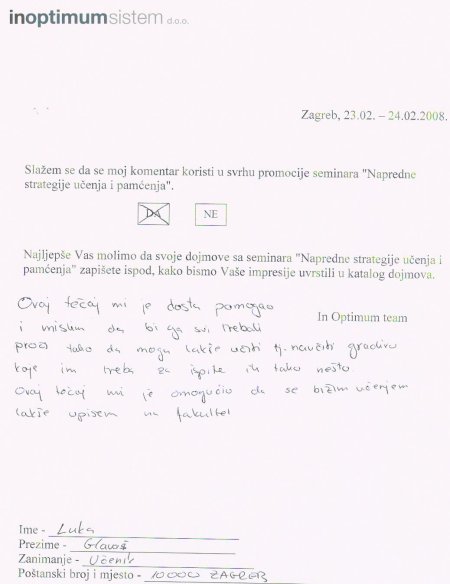 inoptimumsistem d.o.o.
Zagreb, 23.02. – 24.02.2008.
Slažem se da se moj komentar koristi u svrhu promocije seminara "Napredne
strategije učenja i pamćenja".
DA NE
Najljepše Vas molimo da svoje dojmove sa seminara "Napredne strategije učenja i
pamćenja" zapišete ispod, kako bismo Vaše impresije uvrstili u katalog dojmova.
In Optimum team
Ovaj tečaj mi je dosta pomogao
i mislim da bi ga svi trebali
proći tako da mogu lakše učiti tj. naučiti gradivo
koje im treba za ispite ili tako nešto.
Ovaj tečaj mi je omogućio da se bržim učenjem
lakše upišem na fakultet
Ime - Luka
Prezime - Glavaš
Zanimanje - Učenik
Poštanski broj i mjesto - 10000 ZAGREB